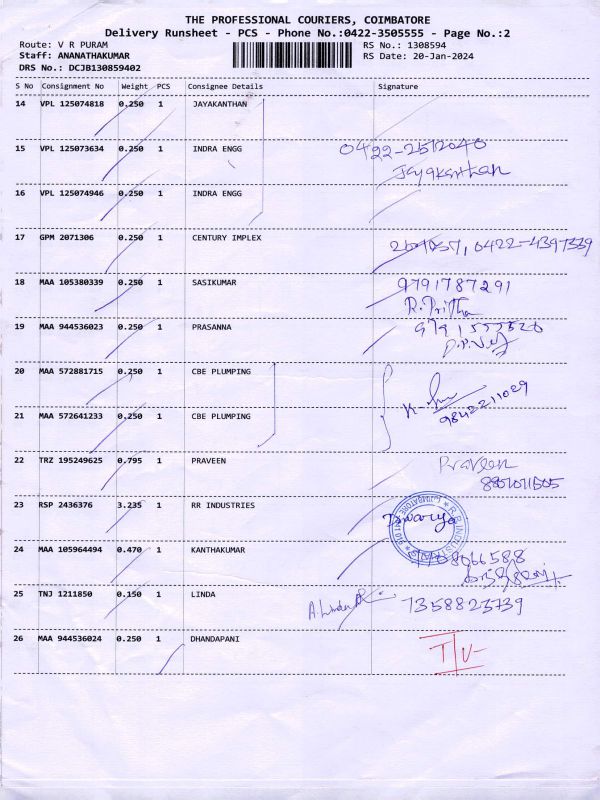 THE PROFESSIONAL COURIERS, COIMBATORE
Delivery Runsheet - PCS - Phone No.:0422-3505555 - Page No.:2
Route: V R PURAM
RS No.: 1308594
Staff: ANANATHAKUMAR
RS Date: 20-Jan-2024
DRS No.: DCJB130859402
S No Consignment No Weight PCS Consignee Details Signature
14 VPL 125074818 0.250 1 JAYAKANTHAN
15 VPL 125073634 0.250 1 INDRA ENGG 0422-2512040
Jayakanthan
16 VPL 125074946 0.250 1 INDRA ENGG
17 GPM 2071306 0.250 1 CENTURY IMPLEX 0422-4397339
18 MAA 105380339 0.250 1 SASIKUMAR 9791787291
R. Pritha
19 MAA 944536023 0.250 1 PRASANNA
20 MAA 572881715 0.250 1 CBE PLUMPING
9842211029
21 MAA 572641233 0.250 1 CBE PLUMPING
22 TRZ 195249625 0.795 1 PRAVEEN Praveen
23 RSP 2436376 3.235 1 RR INDUSTRIES
24 MAA 105964494 0.470 1 KANTHAKUMAR
25 TNJ 1211850 0.150 1 LINDA A. Linda 7358823739
26 MAA 944536024 0.250 1 DHANDAPANI